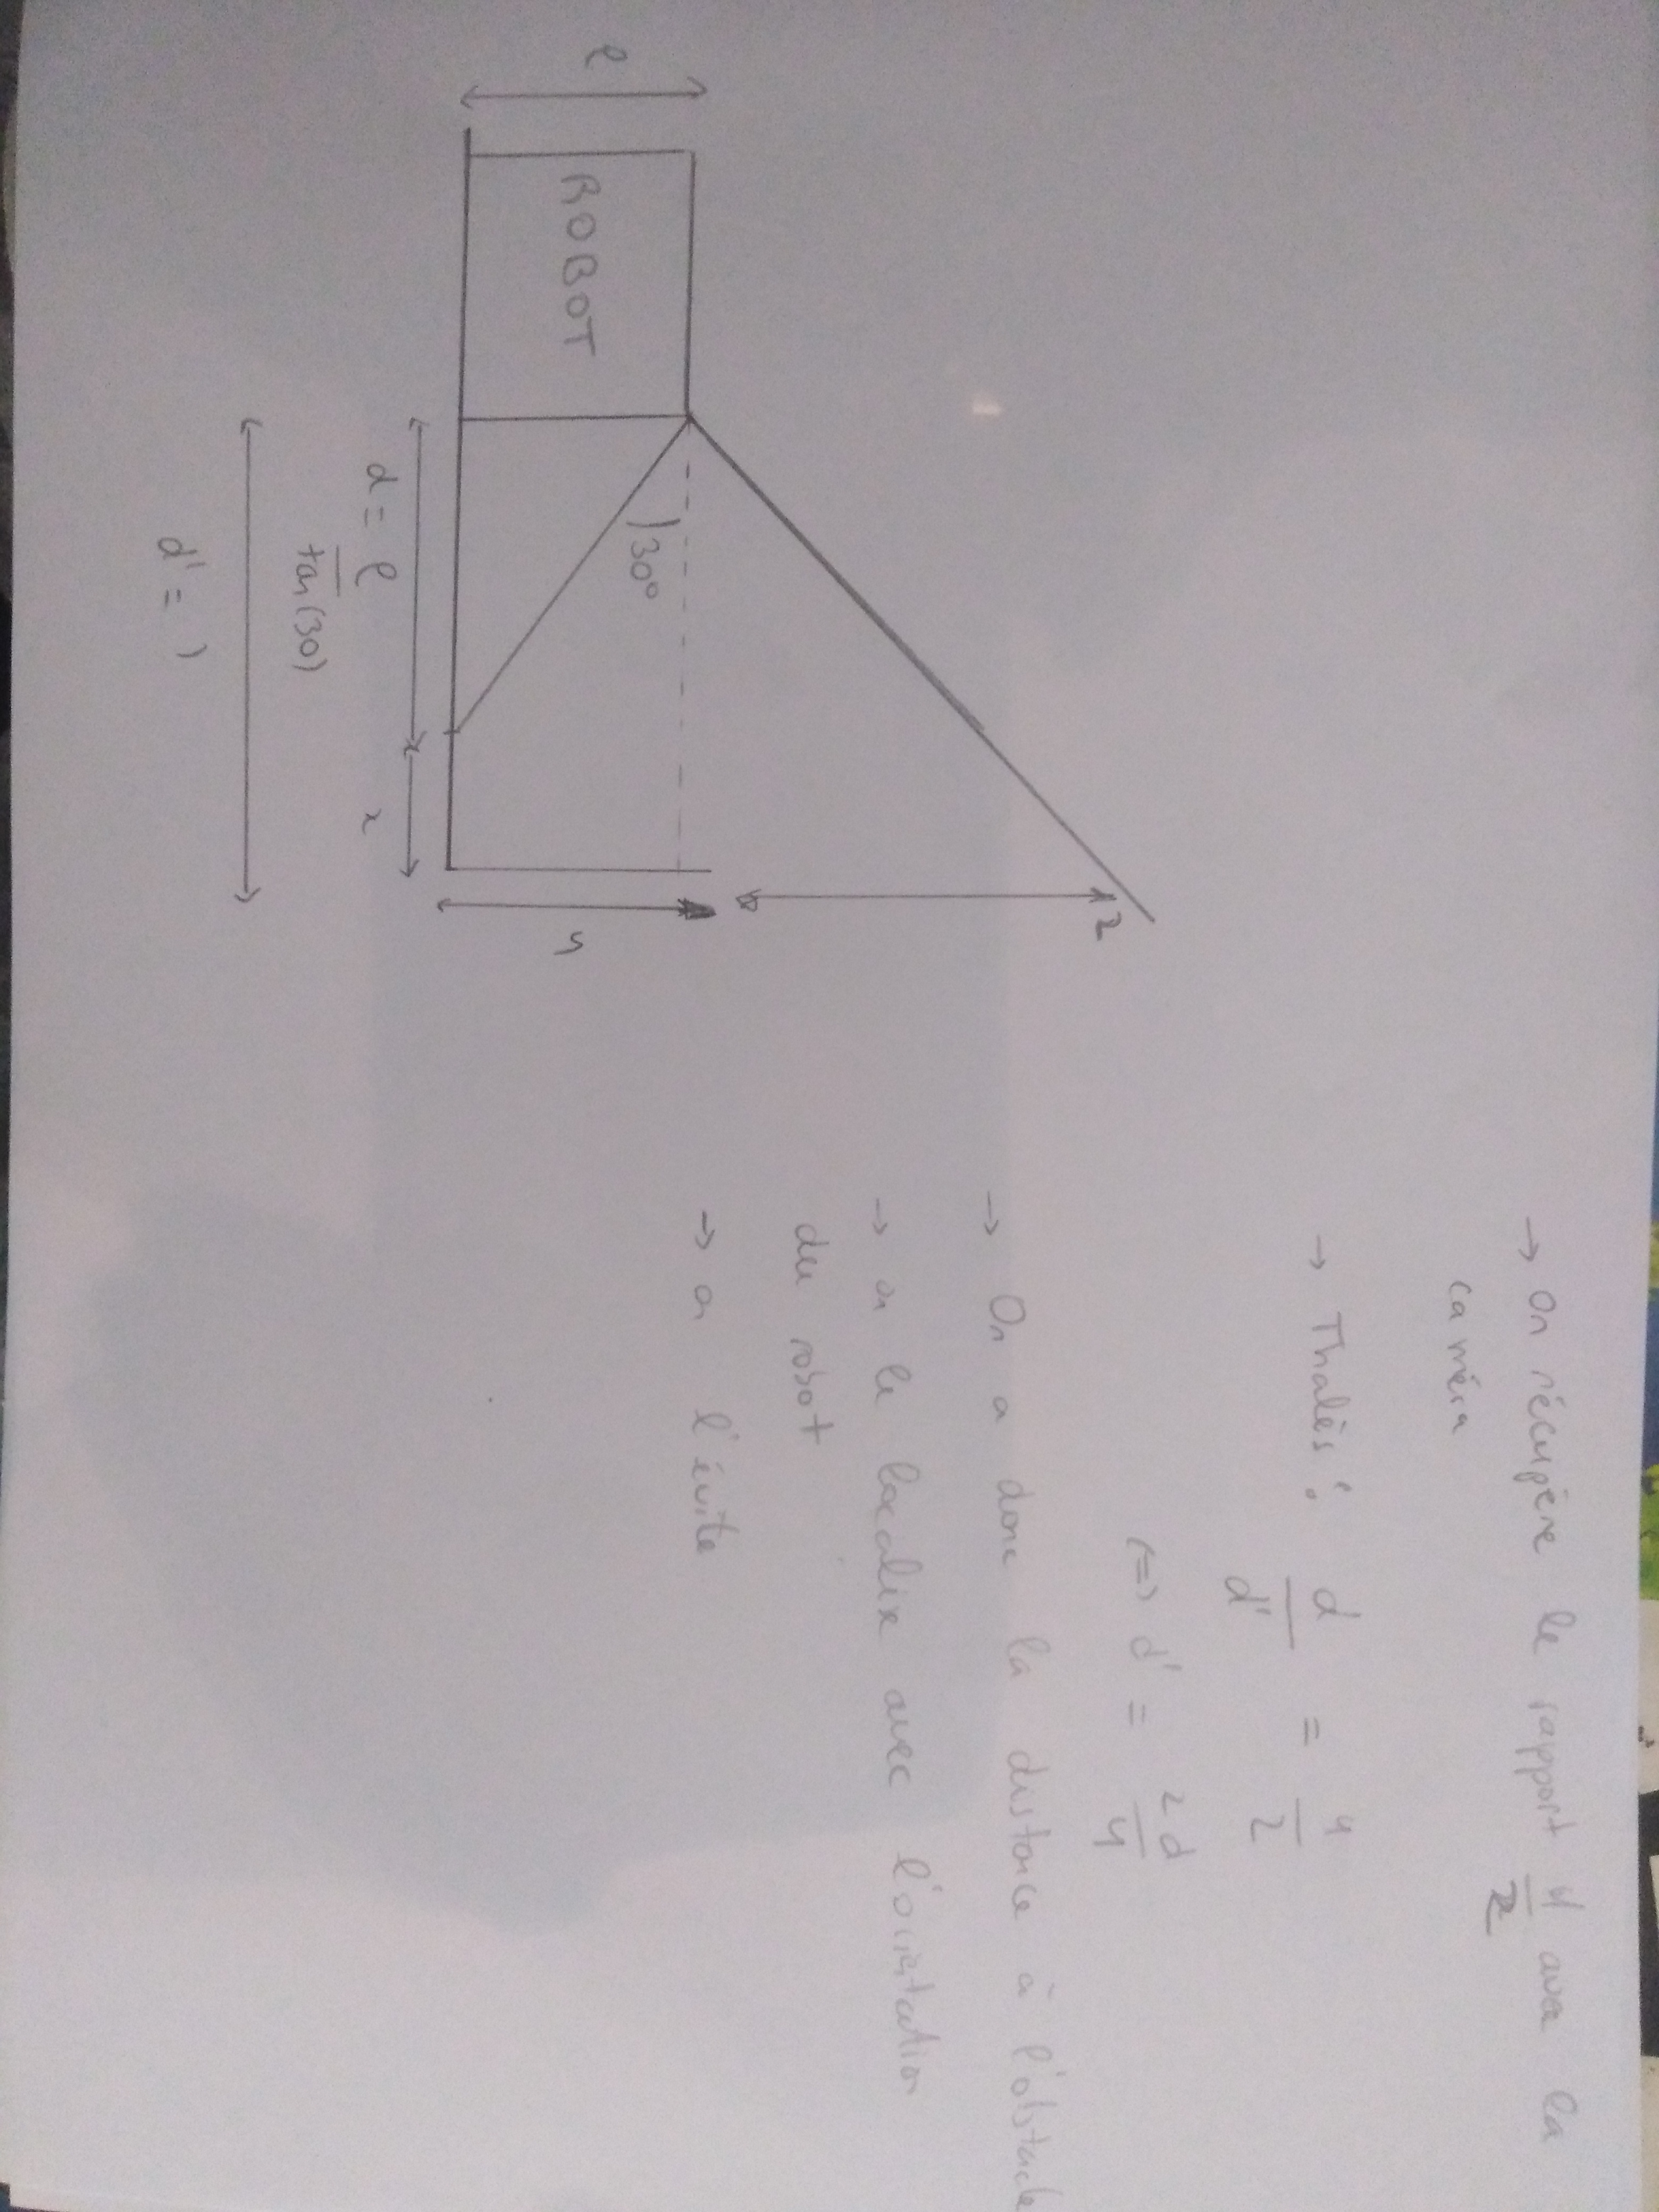 l
ROBOT
30°
d = l
tan(30)
x
d' = ?
y
z
→ On récupère le rapport y/z avec la
caméra
→ Thalès : d/d' = y/z
⇔ d' = zd/y
→ On a donc la distance à l'obstacle
→ on le localise avec l'orientation
du robot
→ on l'évite